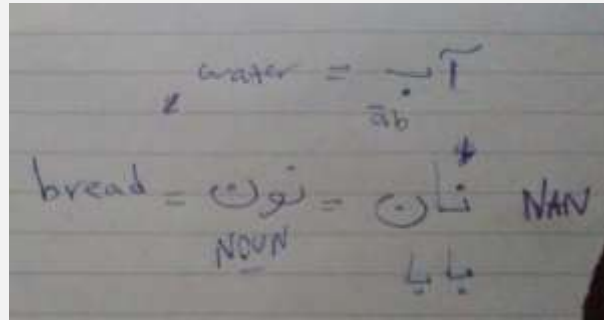 water = آب
āb
bread = نون = نان NAN
NOUN
بابا